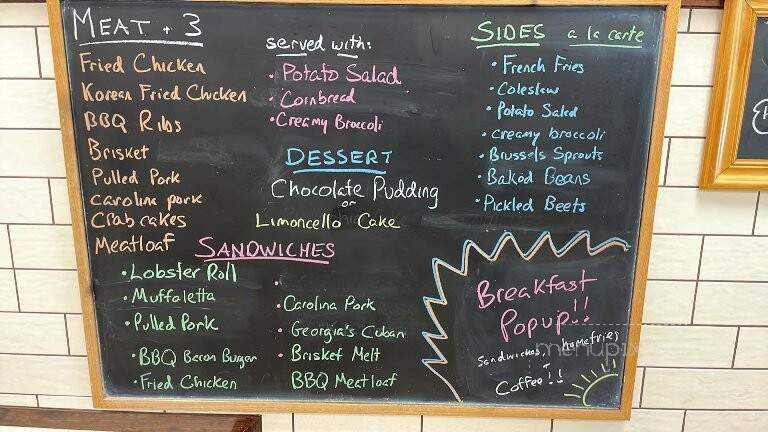 MEAT + 3
Fried Chicken
Korean Fried Chicken
BBQ Ribs
Brisket
Pulled Pork
Carolina pork
Crab cakes
Meatloaf
served with:
• Potato Salad
• Cornbread
• Creamy Broccoli
DESSERT
Chocolate Pudding
or
Limoncello Cake
SIDES a la carte
• French Fries
• Coleslaw
• Potato Salad
• creamy broccoli
• Brussels Sprouts
• Baked Beans
• Pickled Beets
SANDWICHES
• Lobster Roll
• Muffaletta
• Pulled Pork
• BBQ Bacon Burger
• Fried Chicken
•
• Carolina Pork
• Georgia's Cuban
• Brisket Melt
BBQ Meatloaf
Breakfast
Popup!!
Sandwiches, homefries
+
Coffee!!
menupix